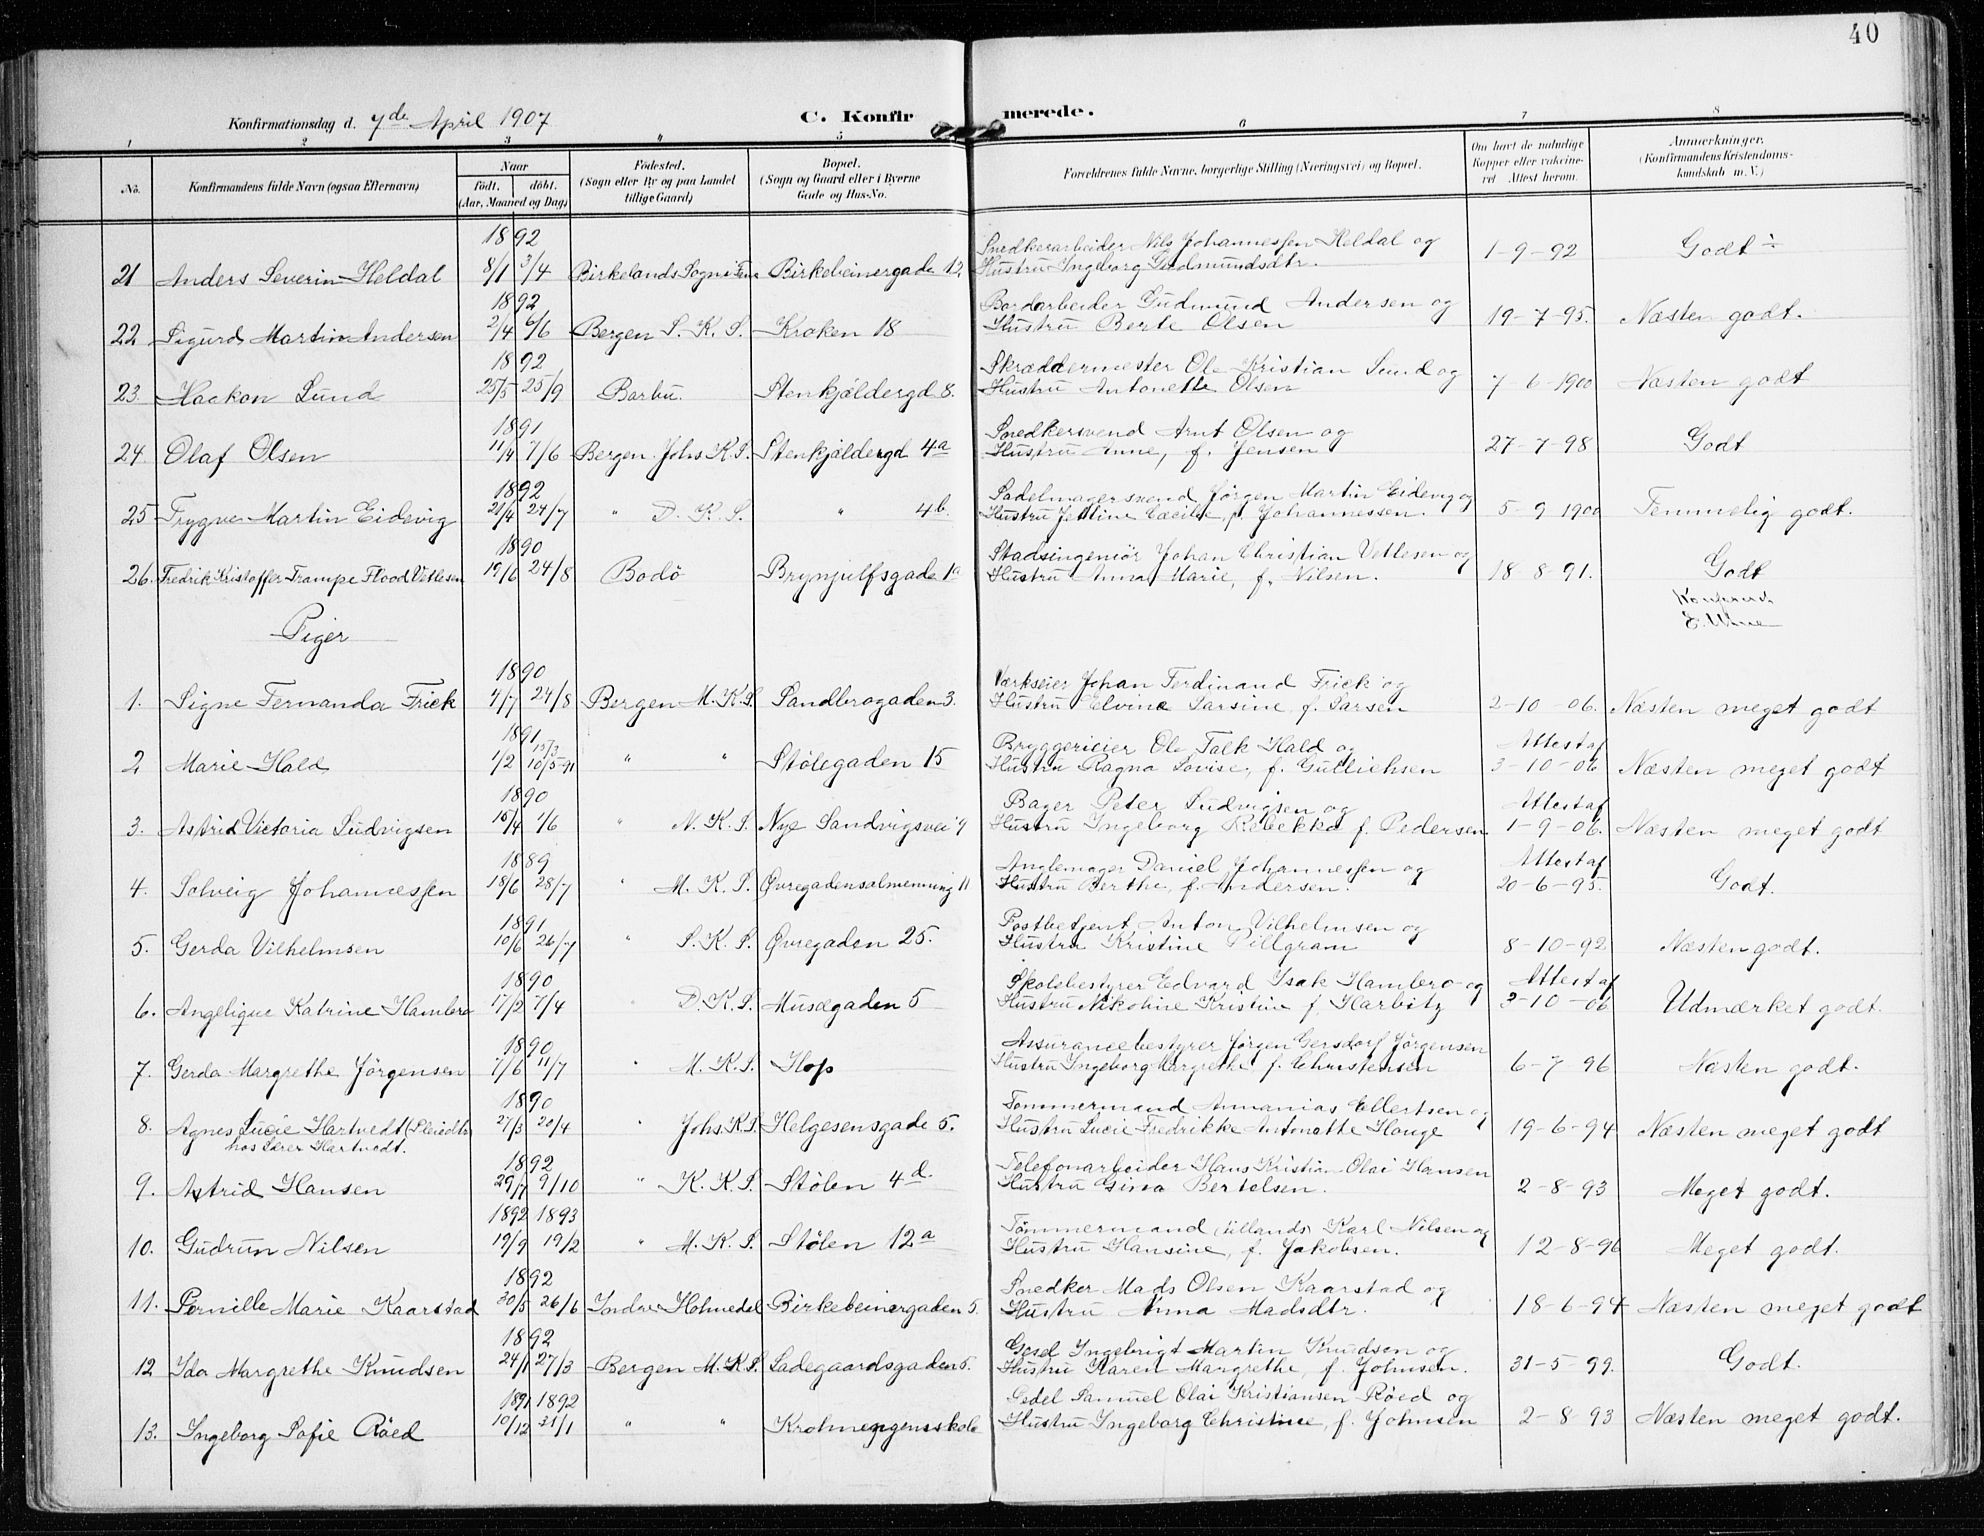 40
Konfirmationsdag d. 7de April 1907 C. Konfirmerede.
1 2 3 4 5 6 7 8
No. Konfirmandens fulde Navn (ogsaa Efternavn) Naar født. døbt. (Aar, Maaned og Dag) Födested. (Sogn eller By og paa Landet tillige Gaard) Bopæl. (Sogn og Gaard eller i Byerne Gade og Hus-No. Forældrenes fulde Navne, borgerlige Stilling (Næringsvei) og Bopæl. Om havt de naturlige Kopper eller vakcineret Attest herom. Anmærkninger. (Konfirmandens Kristendomskundskab m. V.)
1892 Snedkerarbeider Nils Johannessen Heldal og
21 Anders Severin Heldal 8/1 3/4 Birkelands Sogn i Fane Birkebeinergade 12. Hustru Ingeborg Gudmundsdtr. 1-9-92 Godt ÷
1892 Bordarbeider Gudmund Andersen og
22 Sigurd Martin Andersen 2/4 6/6 Bergen S. K. S. Kroken 18 Hustru Berte Olsen 19-7-95. Næsten godt.
1892 Skræddermester Ole Kristian Lund og
23. Haakon Lund 25/5 25/9 Barbu. Stenkjældergd 8. Hustru Antonette Olsen 7 6-1900 Næsten godt
1891 Snedkersvend Arnt Olsen og
24. Olaf Olsen 11/4 7/6 Bergen. Johs K. S. Stenkjældergd 4a Hustru Anne, f. Jensen 27-7-98 Godt
1892 Sadelmagersvend Jørgen Martin Eidevig og
25 Trygve Martin Eidevig 21/4 24/7 " D. K. S. " 4b. Hustru Jettine Cæcilie, f. Johannessen. 5-9 1900 Temmelig godt.
1890 Stadsingeniør Johan Christian Vetlesen og
26. Fredrik Kristoffer Trampe Flood Vetlesen 19/6 24/8 Bodö Brynjulfsgade 1a Hustru Anna Marie, f. Nilsen. 18-8-91. Godt
Piger
1890 Værkseier Johan Ferdinand Frick og
1. Signe Fernanda Frick 4/7 24/8 Bergen M. K. S. Sandbrogaden 3. Hustru Elvine Larsine, f. Larsen 2-10-06. Næsten meget godt
1891 13/3 Bryggerieier Ole Falk Hald og Attest af
2 Marie Hald 1/2 10/5-91 " " Stølegaden 15 Hustru Ragna Lovise, f. Gullichsen 3-10-06 Næsten meget godt
1890 Bager Peter Ludvigsen og Attest af
3. Astrid Victoria Ludvigsen 15/4 1/6 " N. K. S. Nye Sandvigsvei 9 Hustru Ingeborg Rebekka f. Pedersen 1-9-06. Næsten meget godt
1889 Anglemager Daniel Johannessen og Attest af
4. Solveig Johannessen 18/6 28/7 " M. K. S. Øvregadensalmenning 11 Hustru Berthe, f. Andersen. 20-6-95. Godt.
1891 Postbetjent Anton Vilhelmsen og
5. Gerda Vilhelmsen 10/6 26/7 " S. K. S. Øvregaden 25. Hustru Kristine Pillgram 8-10-92 Næsten godt.
1890 Skolebestyrer Edvard Isak Hambro og Attest af
6. Angelique Katrine Hambro 17/2 7/4 D. K. S. Musægaden 5 Hustru Nikoline Kristine f. Harbitz 3-10-06 Udmærket godt.
1890 Assurancebestyrer Jørgen Gersdorf Jørgensen
7. Gerda Margrethe Jörgensen 7/6 11/7 " M. K. S. Hop Hustru Ingeborg Margrethe f. Christensen 6-7-96 Næsten godt.
1890 Tømmermand Annanias Ellertsen og
8. Agnes Lucie Hartvedt (Pleiedtr 27/3 20/4 " Johs. K. S. Helgesensgade 5. Hustru Lucie Fredrikke Antonette Hauge 19-6-94 Næsten meget godt
hos Lærer Hartvedt.
1892 Telefonarbeider Hans Kristian Olai Hansen
9. Astrid Hansen 29/7 9/10 " K. K. S. Stølen 4d. Hustru Gina Bertelsen. 2-8-93 Meget godt.
1892 1893 Tømmermand (udlands) Karl Nilsen og
10. Gudrun Nilsen 19/9 19/2 " M. K. S. Stølen 12a Hustru Hansine, f. Jakobsen. 12-8-96 Meget godt.
1892 Snedker Mads Olsen Kaarstad og
11. Pernille Marie Kaarstad 30/5 26/6 Indre Holmedal Birkebeinergaden 5. Hustru Anna Madsdtr. 18-6-94 Næsten meget godt
1892 Gesel Ingebrigt Martin Knudsen og
12 Ida Margrethe Knudsen 24/1 27/3 Bergen M. K. S. Ladegaardsgaden 5. Hustru Karen Margrethe, f. Johnsen. 31-5-99. Godt.
1891 1892 Samuel Olai Kristiansen Röed og
13. Ingeborg Sofie Röed 10/12 31/1 " " Krohnengensskole Hustru Ingeborg Christine, f. Johnsen 2-8-93 Næsten meget godt.